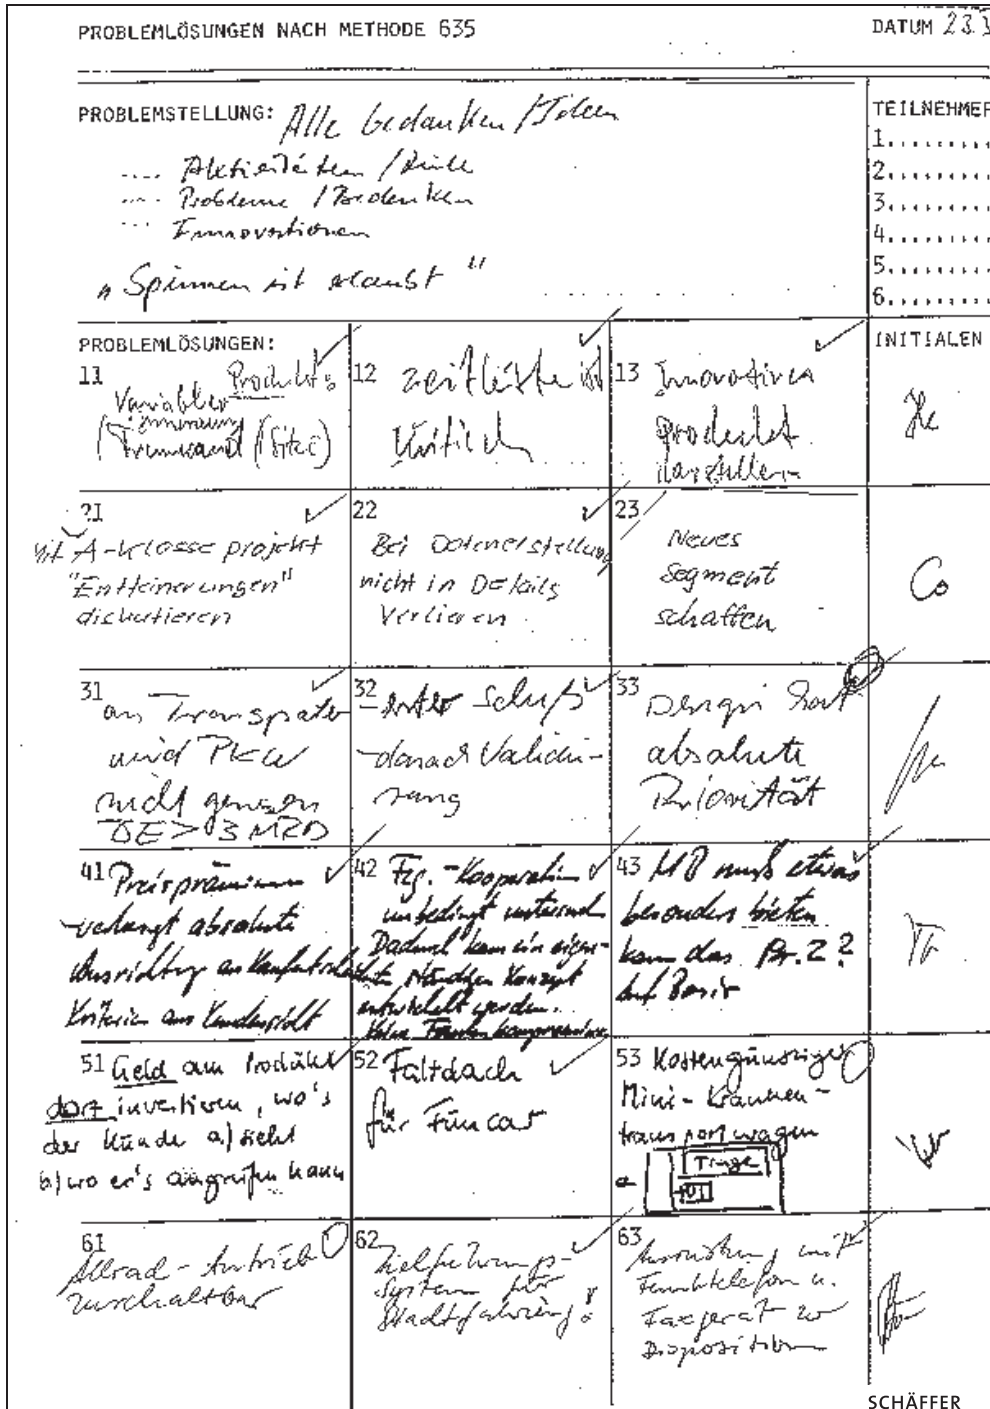 PROBLEMLÖSUNGEN NACH METHODE 635
DATUM 23.
PROBLEMSTELLUNG: Alle Gedanken / Ideen
.... Aktivitäten / Ziele
.... Probleme / Bedenken
... Innovationen
"Spinnen ist erlaubt"
TEILNEHMER
1.........
2.........
3.........
4.........
5.........
6.........
PROBLEMLÖSUNGEN:
INITIALEN
11
Produkts
Variabler
Trennwand (Sitze)
12 Zeitleiste ist
kritisch
13 Innovatives
Produkt
darstellen
He
21
Mit A-Klasse projekt
"Entfeinerungen"
diskutieren
22
Bei Datenerstellung
nicht in Details
verlieren
23
Neues
Segment
schaffen
Co
31
am Transporter
wird PKW
nicht genesen
DE > 3 MRD
32 -erster Schuß
-danach Validie-
rung
33
Design hat
absolute
Priorität
41 Preisprämium
verlangt absolute
Ausrichtung an
Kriterien aus Kundensicht
42 Fzg.-Kooperation
unbedingt
Dadurch kann ein eigen-
ständiges Konzept
entwickelt werden.
Keine
43 MB muß etwas
besonders bieten
kann das Br.2?
auf Basis
51 Geld am Produkt
dort investieren, wo's
der Kunde a) sieht
b) wo er's angreifen kann
52 Faltdach
für Funcar
53 Kostengünstiger
Mini-Kranken-
transportwagen
Trage
61
Allrad-Antrieb
zuschaltbar
62
Zielführungs-
System für
Stadtfahrung!
63
Ausrüstung mit
Funktelefon u.
Faxgerät zur
Disposition
SCHÄFFER